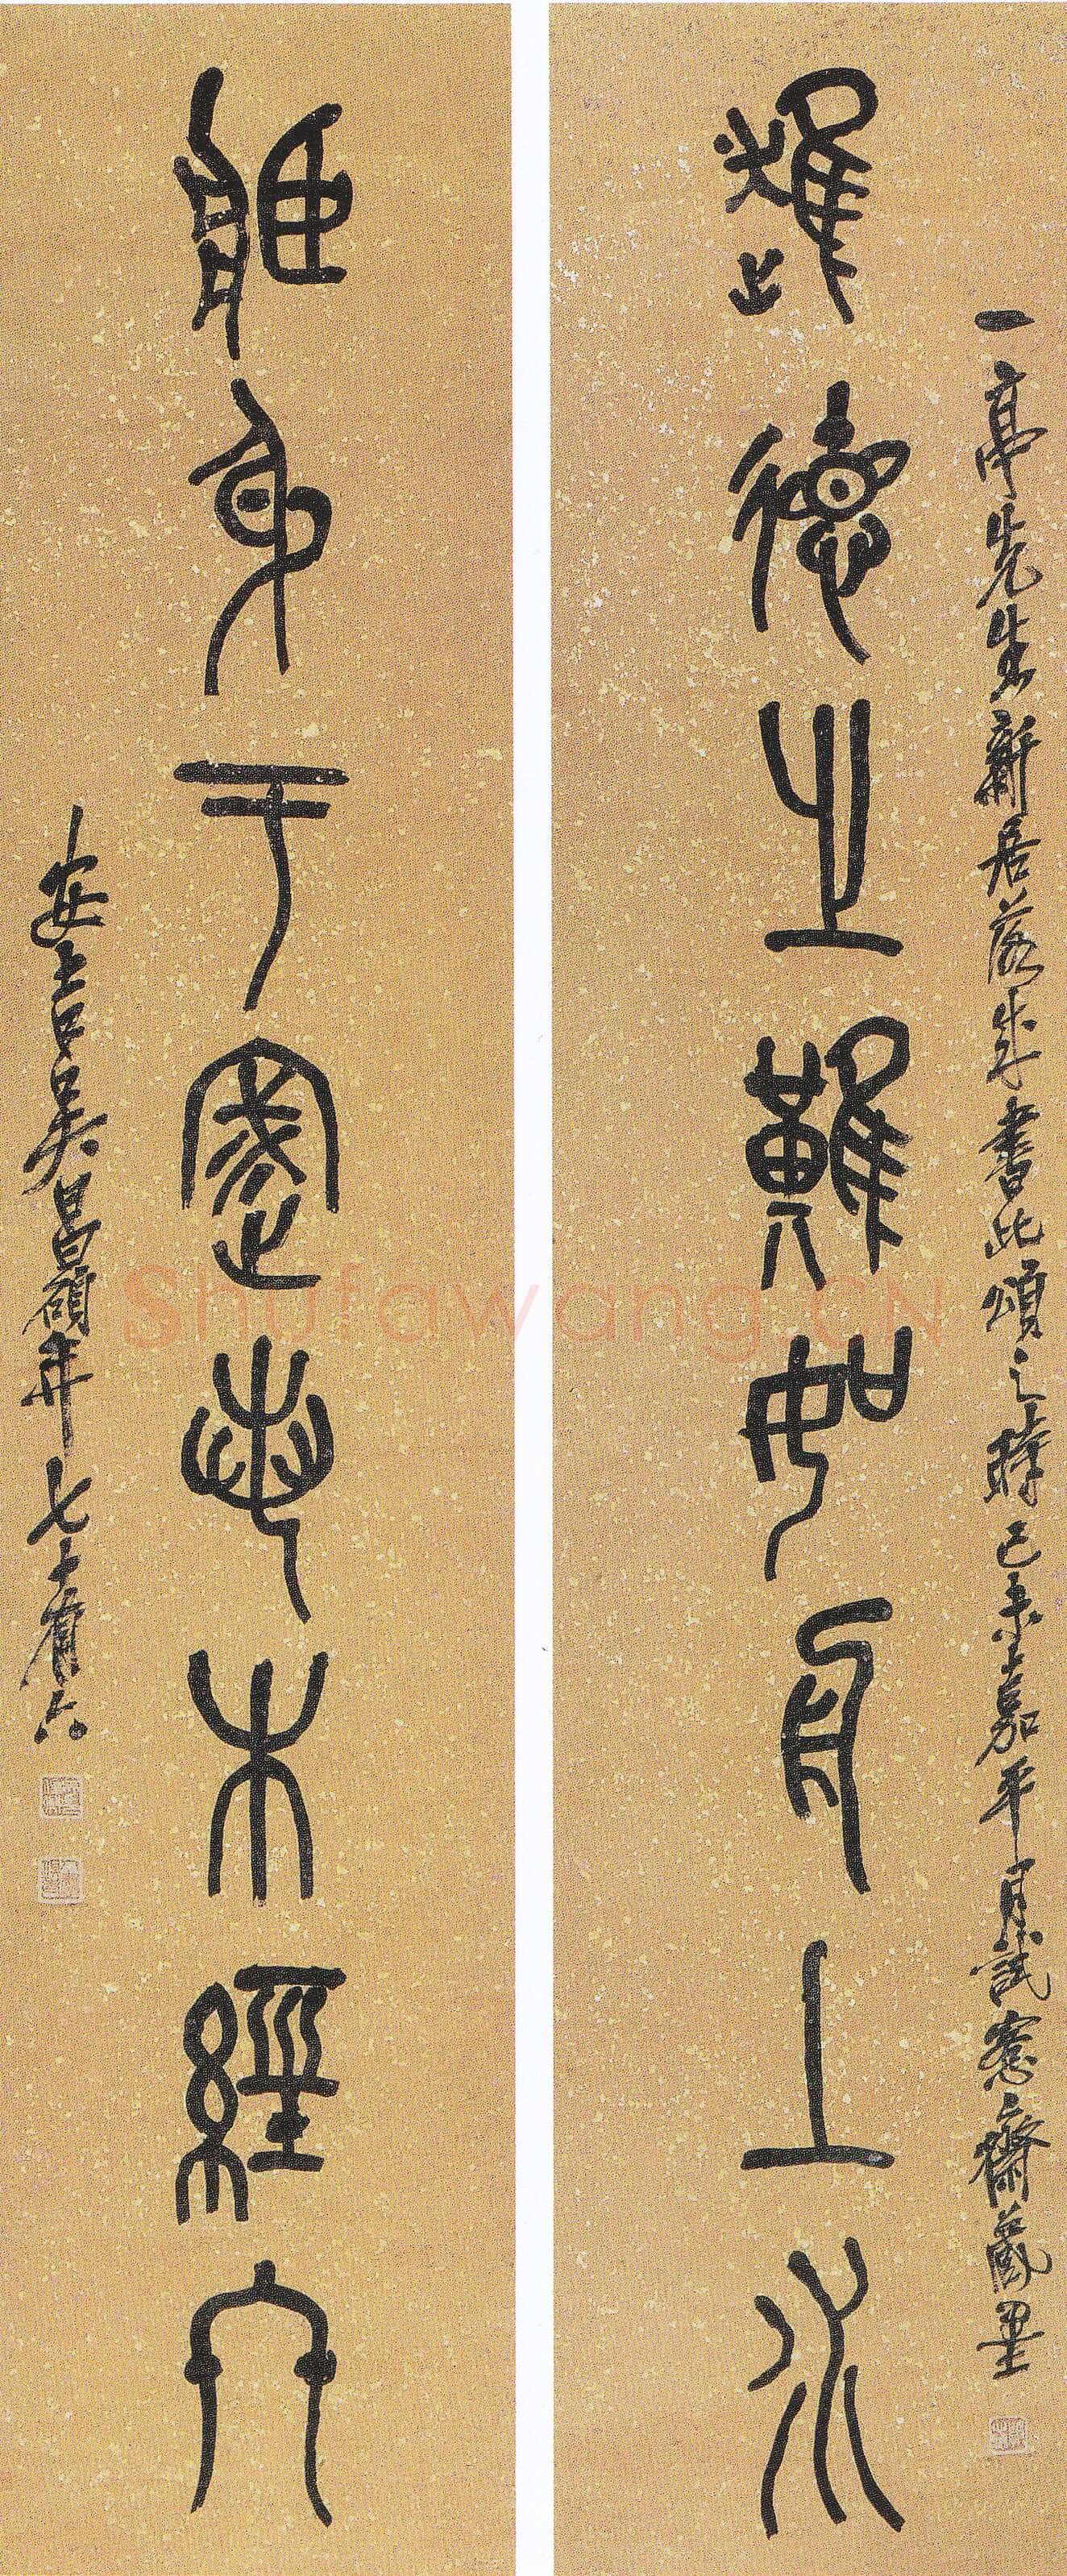 一亭先生新居落成書此頌之時己未嘉平月試愙齋藏墨
進德之難如舟上水
能身于若木經冬
安吉吳昌碩年七十有六
Shufawang.CN